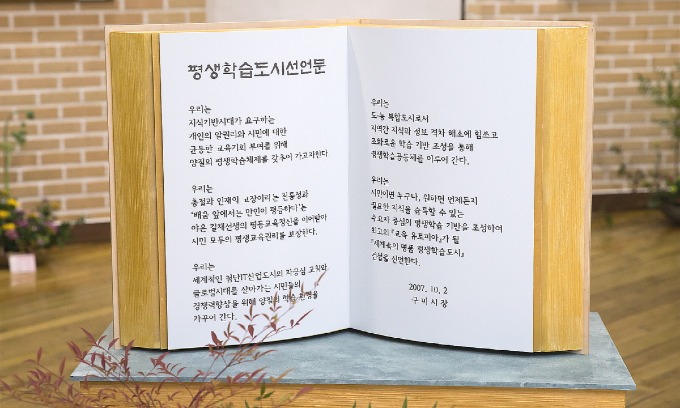 평생학습도시선언문
우리는
지식기반시대가 요구하는
개인의 알권리와 시민에 대한
균등한 교육기회 부여를 위해
양질의 평생학습체제를 갖추어 가고자한다.
우리는
충절과 인재의 고장이라는 전통성과
"배움 앞에서는 만인이 평등하다"는
야은 길재선생의 평등교육정신을 이어받아
시민 모두의 평생교육권리를 보장한다.
우리는
세계적인 첨단IT산업도시의 자긍심 고취와
글로벌시대를 살아가는 시민들의
경쟁력향상을 위해 양질의 학습 환경을
가꾸어 간다.
우리는
도·농 복합도시로서
지역간 지식과 정보 격차 해소에 힘쓰고
조화로운 학습 기반 조성을 통해
평생학습공동체를 이루어 간다.
우리는
시민이면 누구나, 원하면 언제든지
필요한 지식을 습득할 수 있는
수요자 중심의 평생학습 기반을 조성하여
최고의 『교육 유토피아』가 될
『세계속의 명품 평생학습도시』
건설을 선언한다.
2007. 10. 2
구미시장